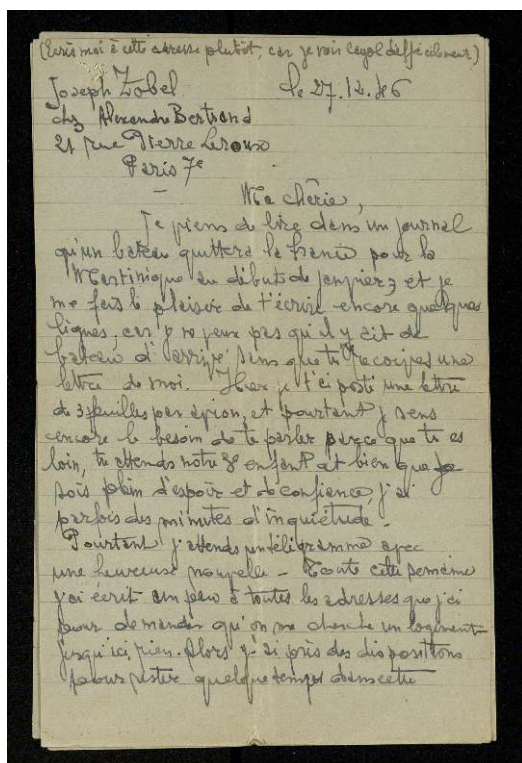 (Ecris moi à cette adresse plutôt, car je vois Cayol difficilement)
Joseph Zobel le 27.12.46
chz Alexandre Bertrand
21 rue Pierre Leroux
Paris 7e
Ma chérie,
Je viens de lire dans un journal
qu'un bateau quittera la France pour la
Martinique au début de janvier, et je
me fais le plaisir de t'écrire encore quelques
lignes, car je ne veux pas qu'il y ait de
bateau d'arrivé sans que tu reçoives une
lettre de moi. Hier je t'ai posté une lettre
de 3 feuilles par avion, et pourtant je sens
encore le besoin de te parler parce que tu es
loin, tu attends notre 3e enfant et bien que je
sois plein d'espoir et de confiance, j'ai
parfois des minutes d'inquiétude.
Pourtant j'attends un télégramme avec
une heureuse nouvelle - Toute cette semaine
j'ai écrit un peu à toutes les adresses que j'ai
pour demander qu'on me cherche un logement
jusqu'ici, rien. Alors j'ai pris des dispositions
pour rester quelque temps dans cette